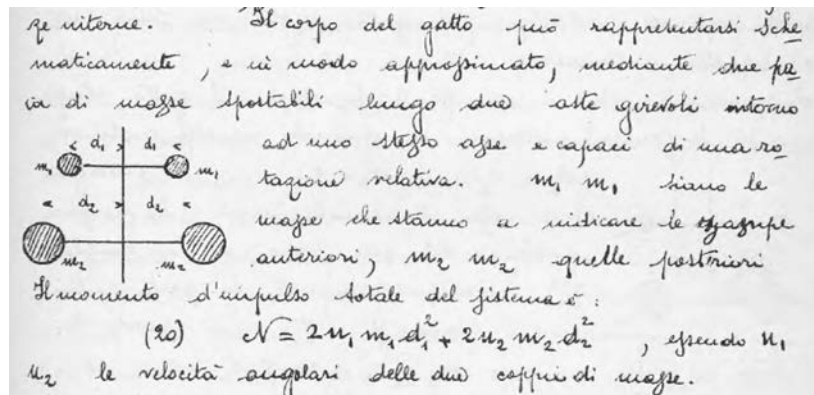 ze interne. Il corpo del gatto può rappresentarsi sche
maticamente, e in modo approssimato, mediante due pa
ia di masse spostabili lungo due aste girevoli intorno
d₁ d₁ ad uno stesso asse e capaci di una ro-
m₁ m₁ tazione relativa. m₁ m₁ siano le
d₂ d₂ masse che stanno a indicare le zampe
m₂ m₂ anteriori, m₂ m₂ quelle posteriori
Il momento d'impulso totale del sistema è:
(20) N = 2u₁m₁d₁² + 2u₂m₂d₂², essendo u₁
u₂ le velocità angolari delle due coppie di masse.